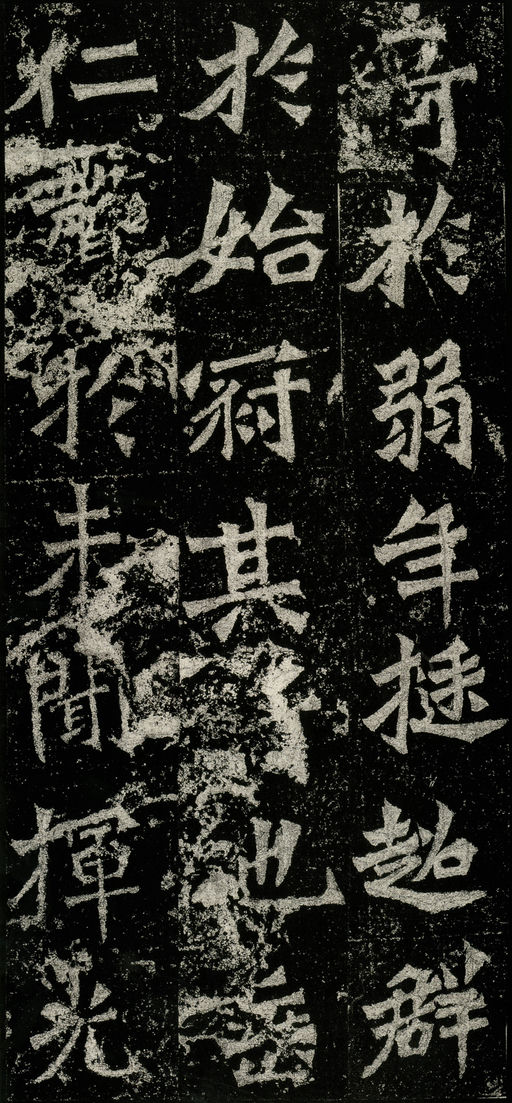 奇於弱年挺超群
於始冠其也岳
仁於未聞揮光